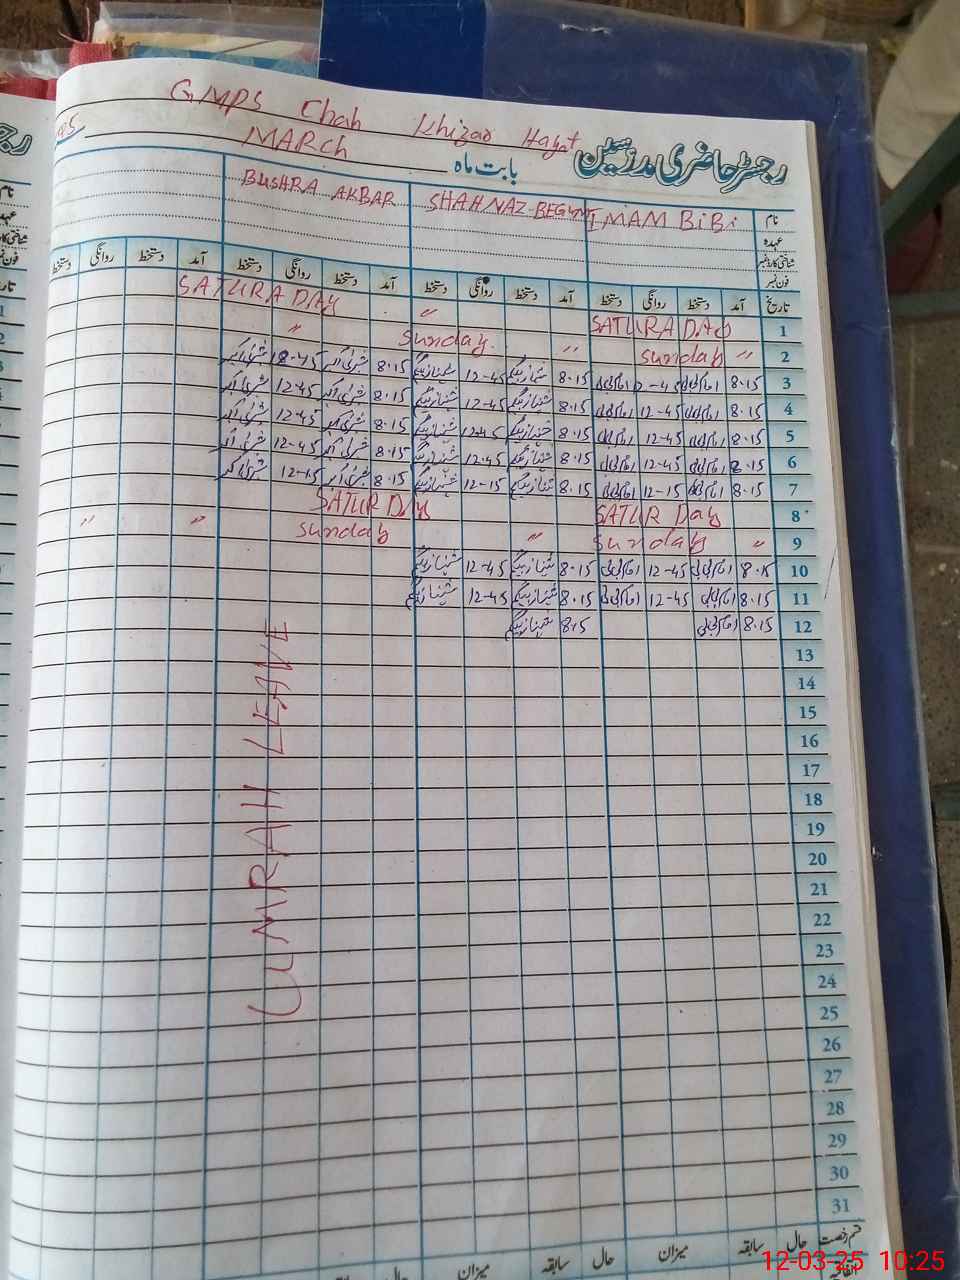 GMPS Chah Khizar Hayat
رجسٹر حاضری مدرسین
بابت ماہ MARCh
نام IMAM BiBi SHAHNAZ BEGUM BUSHRA AKBAR
عہدہ
شناختی کارڈ نمبر
فون نمبر
تاریخ آمد دستخط روانگی دستخط آمد دستخط روانگی دستخط آمد دستخط روانگی دستخط آمد دستخط روانگی دستخط
1 SATURADAY " SATURADAY
2 " sunday " sunday "
3 8.15 امام بی بی 12-45 امام بی بی 8.15 شہناز بیگم 12-45 شہناز بیگم 8.15 بشریٰ اکبر 12-45 بشریٰ اکبر
4 8.15 امام بی بی 12-45 امام بی بی 8.15 شہناز بیگم 12-45 شہناز بیگم 8.15 بشریٰ اکبر 12-45 بشریٰ اکبر
5 8.15 امام بی بی 12-45 امام بی بی 8.15 شہناز بیگم 12-45 شہناز بیگم 8.15 بشریٰ اکبر 12-45 بشریٰ اکبر
6 8.15 امام بی بی 12-45 امام بی بی 8.15 شہناز بیگم 12-45 شہناز بیگم 8.15 بشریٰ اکبر 12-45 بشریٰ اکبر
7 8.15 امام بی بی 12-15 امام بی بی 8.15 شہناز بیگم 12-15 شہناز بیگم 8.15 بشریٰ اکبر 12-15 بشریٰ اکبر
8 SATUR Day SATUR DAy
9 " sunday " sunday " "
10 8.15 امام بی بی 12-45 امام بی بی 8.15 شہناز بیگم 12-45 شہناز بیگم
11 8.15 امام بی بی 12-45 امام بی بی 8.15 شہناز بیگم 12-45 شہناز بیگم
12 8.15 امام بی بی 8.15 شہناز بیگم
UMRAH LEAVE
13
14
15
16
17
18
19
20
21
22
23
24
25
26
27
28
29
30
31
قسم رخصت حال سابقہ میزان حال سابقہ میزان حال سابقہ
اتفاقیہ
12-03-25 10:25